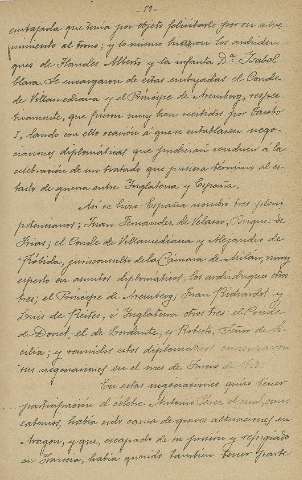 embajada que tenía por objeto felicitarle por su adve-
nimiento al trono; y lo mismo hicieron los archidu-
ques de Flandes Alberto y la infanta Dª Isabel
Clara. Se encargaron de estas embajadas el Conde
de Villamediana y el Príncipe de Aremberg, respec-
tivamente, que fueron muy bien recibidos por Jacobo
I, dando con ello ocasión á que se entablasen nego-
ciaciones diplomáticas que pudieran conducir á la
celebración de un tratado que pusiera término al es-
tado de guerra entre Inglaterra y España.
Así se hizo. España nombró tres pleni-
potenciarios; Juan Fernandez de Velasco, Duque de
Frias; el Conde de Villamediana y Alejandro de
Róbida, jurisconsulto de la Cámara de Milán, muy
experto en asuntos diplomáticos; los archiduques otros
tres; el Príncipe de Aremberg, Juan Richardot y
Luis de; é Inglaterra otros tres: el Conde
de Dorset, el de y Roberto, Señor de
Cecilia; y reunidos estos diplomáticos comenzaron
sus negociaciones en el mes de
En estas negociaciones quiso tener
participación el célebre Antonio Perez el cual, como
sabemos, había sido causa de graves alteraciones en
Aragon, y que, escapado de su prisión y refugiado
en Francia, había querido también tener parte